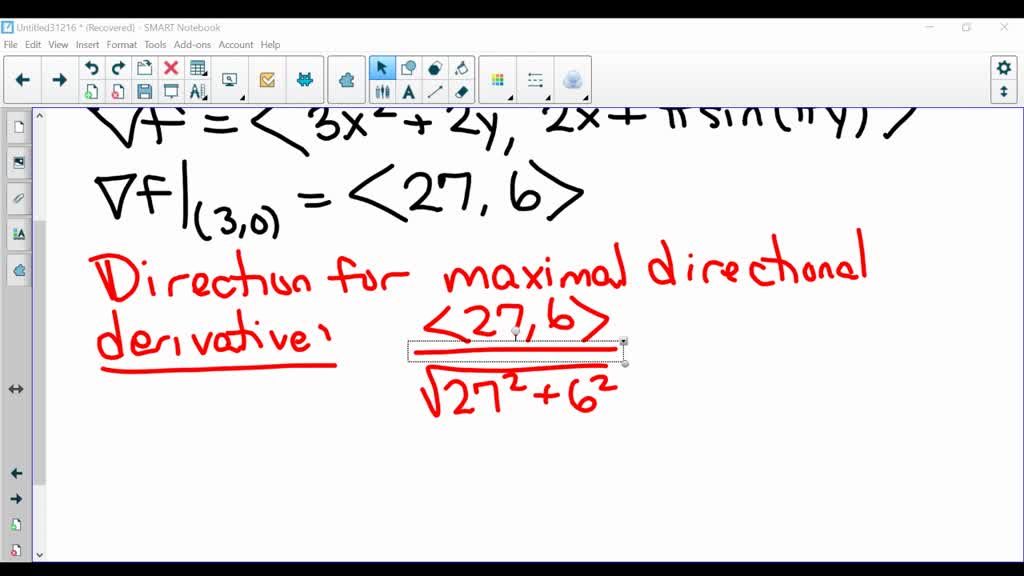 Untitled31216 * (Recovered) - SMART Notebook
File Edit View Insert Format Tools Add-ons Account Help
∇f = <3x² + 2y, 2x + π sin(πy)>
∇f|(3,0) = <27, 6>
Direction for maximal directional
derivative:
<27, 6>
√27² + 6²